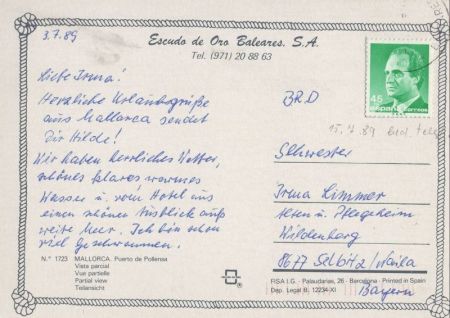 3.7.89
Escudo de Oro Baleares, S.A.
Tel. (971) 20 88 63
Liebe Irma!
Herzliche Urlaubsgrüße
aus Mallorca sendet
Dir Hilde!
Wir haben herrliches Wetter,
schönes klares warmes
Wasser u. vom Hotel aus
einen schönen Ausblick aufs
weite Meer. Ich bin schon
viel geschwommen.
N.º 1723 MALLORCA. Puerto de Pollensa
Vista parcial
Vue partielle
Partial view
Teilansicht
45
españa correos
BRD
15.7.89
Schwester
Irma Limmer
Alten u. Pflegeheim
Wildenberg
8677 Selbitz/Naila
Bayern
FISA I.G. - Palaudarias, 26 - Barcelona - Printed in Spain
Dep. Legal B. 12234-XI